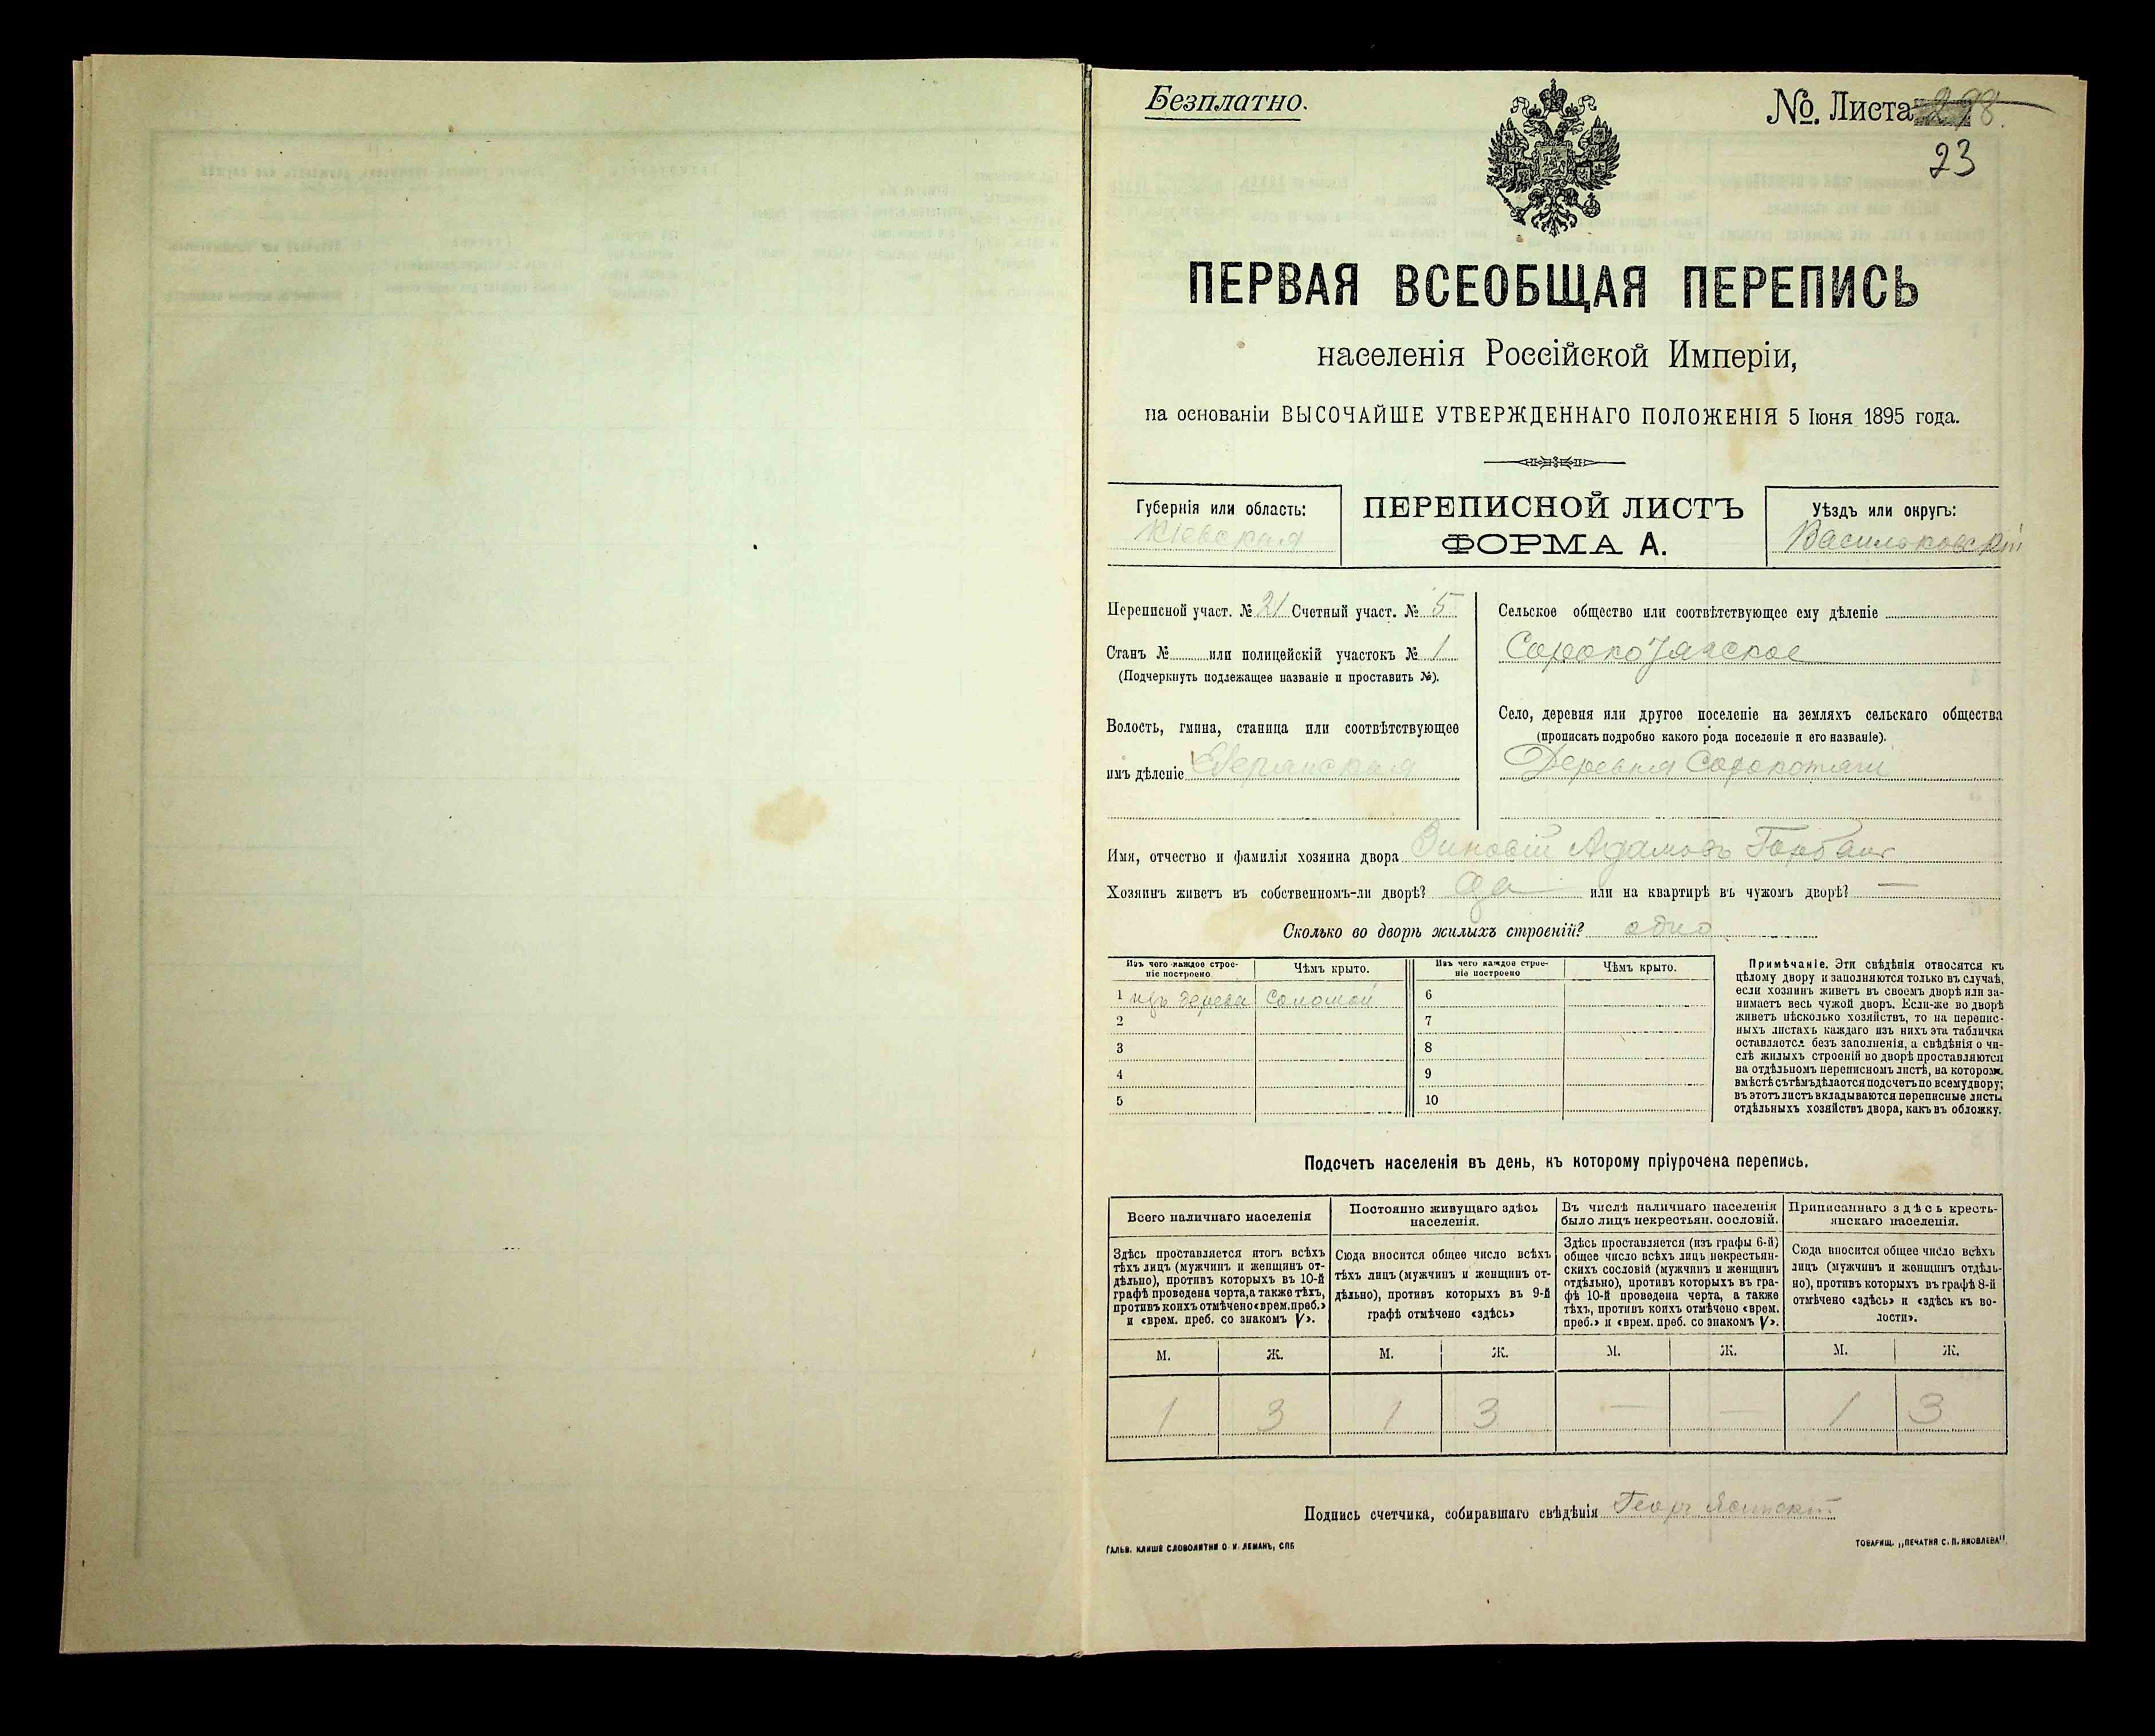 Безплатно.
№. Листа 298.
23
ПЕРВАЯ ВСЕОБЩАЯ ПЕРЕПИСЬ
населенія Россійской Имперіи,
на основаніи ВЫСОЧАЙШЕ УТВЕРЖДЕННАГО ПОЛОЖЕНІЯ 5 Іюня 1895 года.
Губернія или область:
Кіевская
ПЕРЕПИСНОЙ ЛИСТЪ
ФОРМА А.
Уѣздъ или округъ:
Васильковскій
Переписной участ. № 21 Счетный участ. № 5
Станъ № или полицейскій участокъ № 1
(Подчеркнуть подлежащее названіе и проставить №).
Волость, гмина, станица или соотвѣтствующее
имъ дѣленіе
Сельское общество или соотвѣтствующее ему дѣленіе
Сорокотягское
Село, деревня или другое поселеніе на земляхъ сельскаго общества
(прописать подробно какого рода поселеніе и его названіе).
Деревня Сорокотяги
Имя, отчество и фамилія хозяина двора Зиновій Адамовъ
Хозяинъ живетъ въ собственномъ-ли дворѣ? да или на квартирѣ въ чужомъ дворѣ? —
Сколько во дворѣ жилыхъ строеній? одно
Изъ чего каждое строе-
ніе построено
Чѣмъ крыто.
Изъ чего каждое строе-
ніе построено
Чѣмъ крыто.
1 изъ дерева соломой 6
2 7
3 8
4 9
5 10
Примѣчаніе. Эти свѣдѣнія относятся къ
цѣлому двору и заполняются только въ случаѣ,
если хозяинъ живетъ въ своемъ дворѣ или за-
нимаетъ весь чужой дворъ. Если-же во дворѣ
живетъ нѣсколько хозяйствъ, то на перепис-
ныхъ листахъ каждаго изъ нихъ эта табличка
оставляется безъ заполненія, а свѣдѣнія о чи-
слѣ жилыхъ строеній во дворѣ проставляются
на отдѣльномъ переписномъ листѣ, на которомъ
вмѣстѣ съ тѣмъ дѣлается подсчетъ по всему двору;
въ этотъ листъ вкладываются переписные листы
отдѣльныхъ хозяйствъ двора, какъ въ обложку.
Подсчетъ населенія въ день, къ которому пріурочена перепись.
Всего наличнаго населенія
Здѣсь проставляется итогъ всѣхъ
тѣхъ лицъ (мужчинъ и женщинъ от-
дѣльно), противъ которыхъ въ 10-й
графѣ проведена черта, а также тѣхъ,
противъ коихъ отмѣчено «врем. преб.»
и «врем. преб. со знакомъ V».
Постоянно живущаго здѣсь
населенія.
Сюда вносится общее число всѣхъ
тѣхъ лицъ (мужчинъ и женщинъ от-
дѣльно), противъ которыхъ въ 9-й
графѣ отмѣчено «здѣсь»
Въ числѣ наличнаго населенія
было лицъ некрестьян. сословій.
Здѣсь проставляется (изъ графы 6-й)
общее число всѣхъ лицъ некрестьян-
скихъ сословій (мужчинъ и женщинъ
отдѣльно), противъ которыхъ въ гра-
фѣ 10-й проведена черта, а также
тѣхъ, противъ коихъ отмѣчено «врем.
преб.» и «врем. преб. со знакомъ V».
Приписаннаго здѣсь кресть-
янскаго населенія.
Сюда вносится общее число всѣхъ
лицъ (мужчинъ и женщинъ отдѣль-
но), противъ которыхъ въ графѣ 8-й
отмѣчено «здѣсь» и «здѣсь къ во-
лости».
М. Ж. М. Ж. М. Ж. М. Ж.
1 3 1 3 — — 1 3
Подпись счетчика, собиравшаго свѣдѣнія
ГАЛЬВ. КЛИШЕ СЛОВОЛИТНИ О. И. ЛЕМАНЪ, СПБ
ТОВАРИЩ. „ПЕЧАТНЯ С. П. ЯКОВЛЕВА".